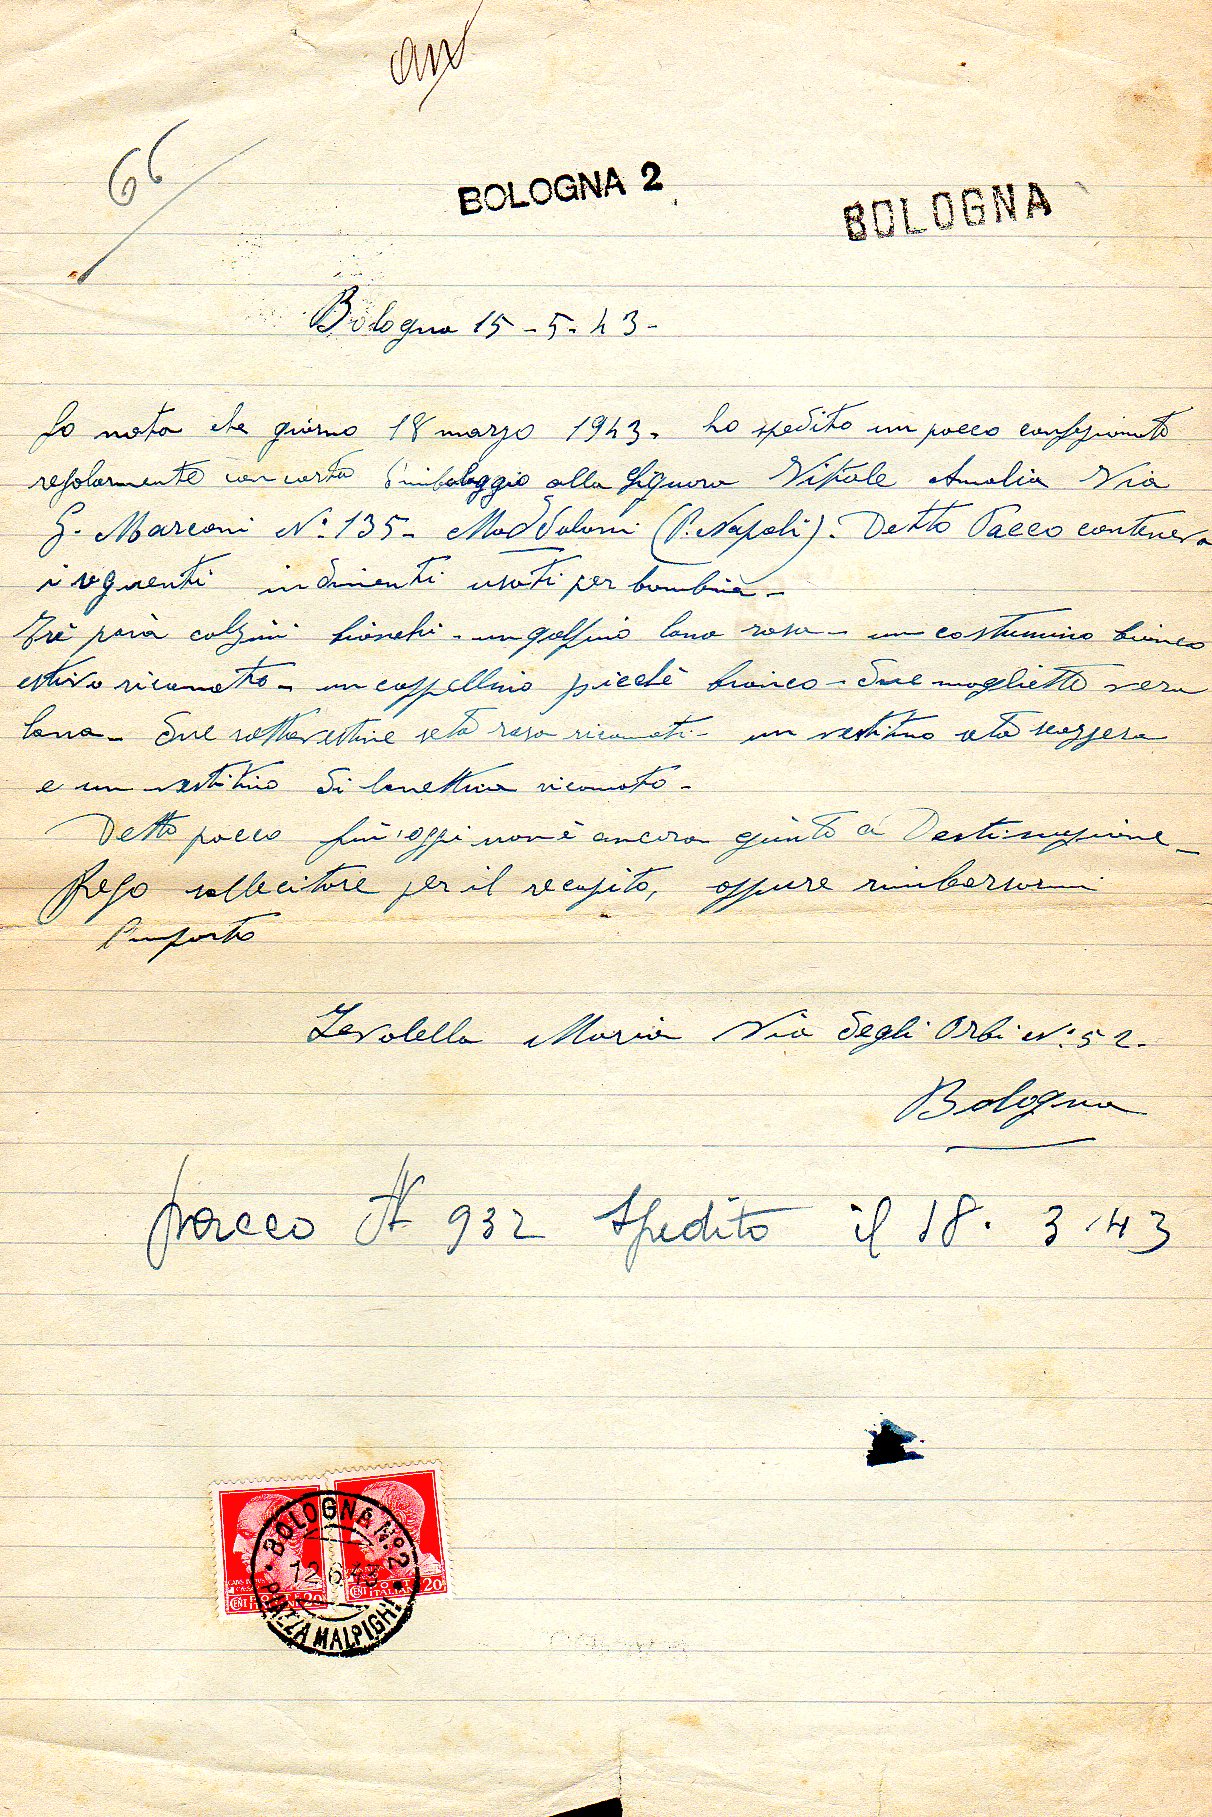 66
BOLOGNA 2
BOLOGNA
Bologna 15-5-43-
Fo nota che giorno 18 marzo 1943- ho spedito un pacco confezionato
regolarmente con carta d'imbalaggio alla Signora Vitale Amalia Via
G. Marconi N. 135- Maddaloni (P. Napoli). Detto Pacco conteneva
i seguenti indumenti usati per bambina-
Trè paia calzini bianchi - un golfino lana rosa - un costumino bianco
estivo ricamato - un cappellino picchè bianco - due magliette vera
lana - due sottovestine seta rosa ricamati - un vestitino seta scozzera
e un vestitino di lanettina ricamato -
Detto pacco fin'oggi non è ancora giunto a Destinazione -
Prego sollecitare per il recapito, oppure rimborsarmi
l'importo
Zevolella Maria Via degli Orbi N. 52-
Bologna
pacco N 932 spedito il 18. 3.43
BOLOGNA No. 2
12.6.43
PIAZZA MALPIGHI
CENT 20
ITALIA
CENT 20